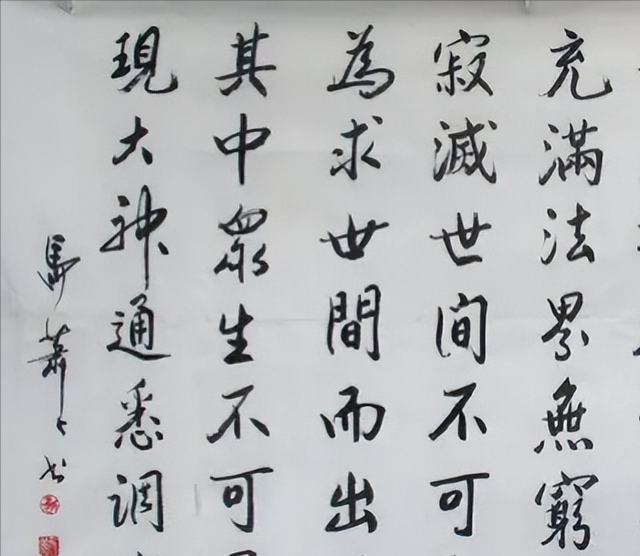 充滿法界無窮
寂滅世间不可
為求世間而出
其中眾生不可
現大神通悉調
馬蕭々书